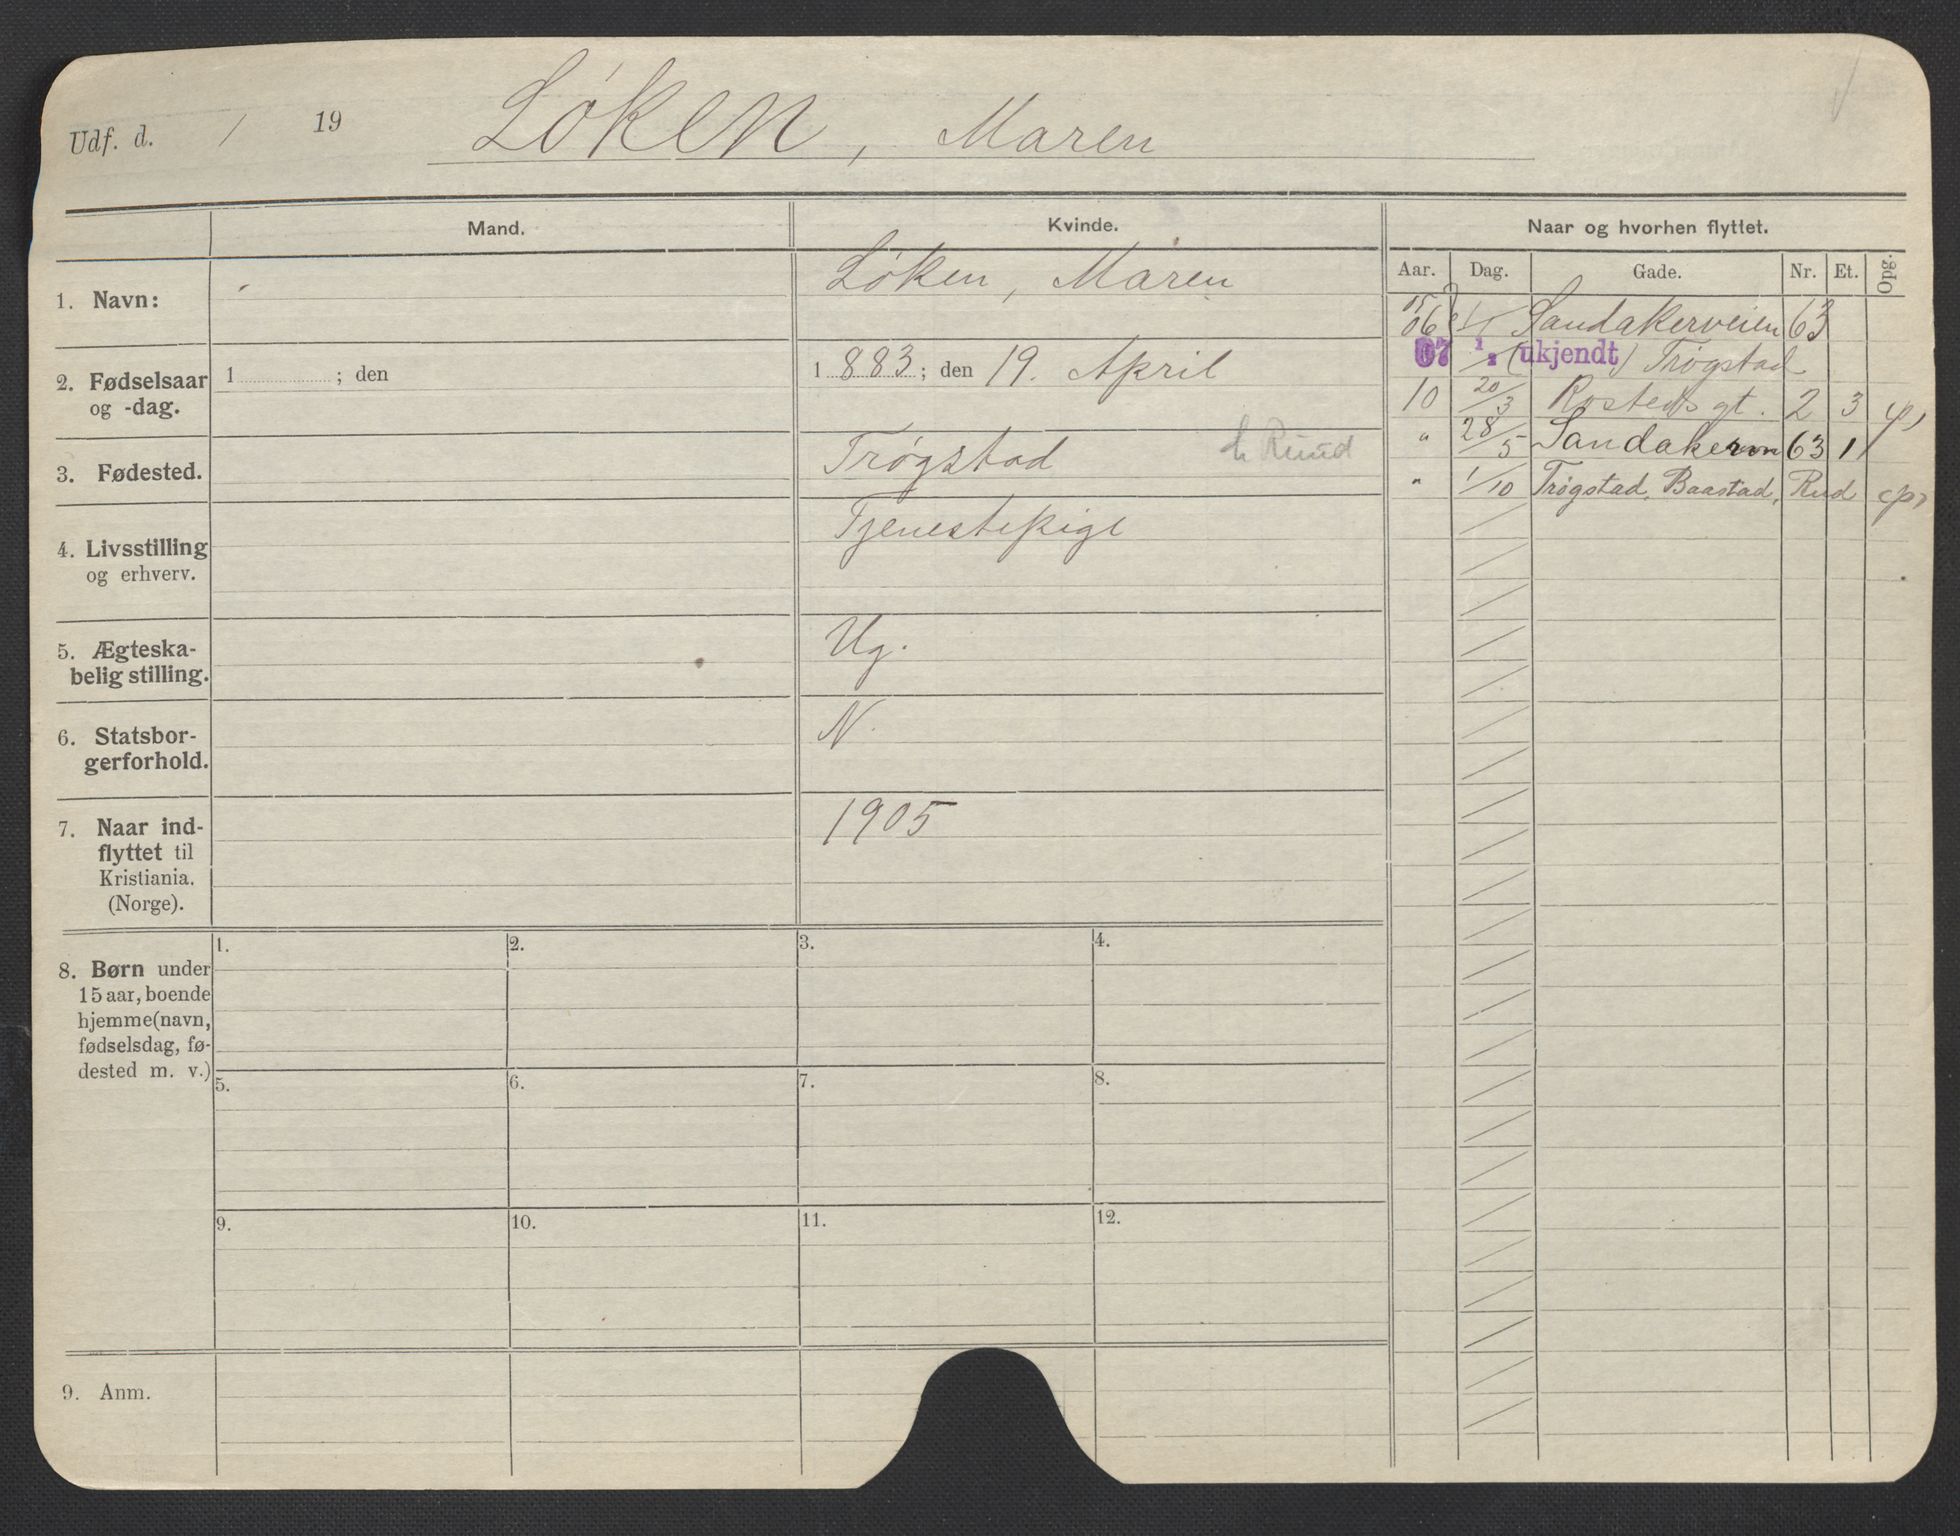 Udf. d. / 19 Løken, Maren
Mand. Kvinde. Naar og hvorhen flyttet.
Aar. Dag. Gade. Nr. Et. Opg.
1. Navn: Løken, Maren
2. Fødselsaar og -dag. 1 ; den
1883; den 19. April
3. Fødested. Trøgstad Ruud
4. Livsstilling og erhverv. Tjenestepige
5. Ægteska-
belig stilling. Ug.
6. Statsbor-
gerforhold. N.
7. Naar ind-
flyttet til
Kristiania.
(Norge). 1905
05
06 1/ Sandakerveien 63
07 (ukjendt) Trøgstad
10 20/3 Rosteds gt. 2 3
" 28/5 Sandakervn 63 1
" 1/10 Trøgstad, Baastad, Rud
8. Børn under
15 aar, boende
hjemme (navn,
fødselsdag, fø-
dested m. v.)
1. 2. 3. 4.
5. 6. 7. 8.
9. 10. 11. 12.
9. Anm.